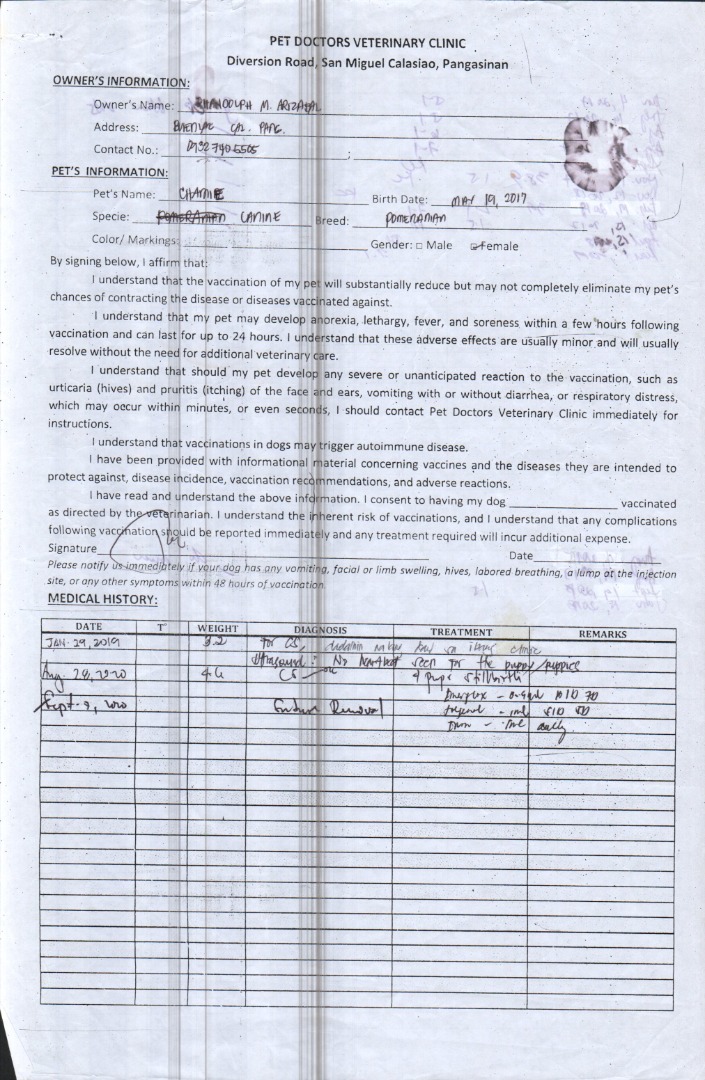 PET DOCTORS VETERINARY CLINIC
Diversion Road, San Miguel Calasiao, Pangasinan
OWNER'S INFORMATION:
Owner's Name: M. ARIZABAL
Address: PANG.
Contact No.: 0932 740 5505
PET'S INFORMATION:
Pet's Name: Birth Date: MAY 19, 2017
Specie: POMERANIAN CANINE Breed: POMERANIAN
Color/ Markings: Gender: □ Male ☑Female
By signing below, I affirm that:
I understand that the vaccination of my pet will substantially reduce but may not completely eliminate my pet's
chances of contracting the disease or diseases vaccinated against.
I understand that my pet may develop anorexia, lethargy, fever, and soreness within a few hours following
vaccination and can last for up to 24 hours. I understand that these adverse effects are usually minor and will usually
resolve without the need for additional veterinary care.
I understand that should my pet develop any severe or unanticipated reaction to the vaccination, such as
urticaria (hives) and pruritis (itching) of the face and ears, vomiting with or without diarrhea, or respiratory distress,
which may occur within minutes, or even seconds, I should contact Pet Doctors Veterinary Clinic immediately for
instructions.
I understand that vaccinations in dogs may trigger autoimmune disease.
I have been provided with informational material concerning vaccines and the diseases they are intended to
protect against, disease incidence, vaccination recommendations, and adverse reactions.
I have read and understand the above information. I consent to having my dog ____________ vaccinated
as directed by the veterinarian. I understand the inherent risk of vaccinations, and I understand that any complications
following vaccination should be reported immediately and any treatment required will incur additional expense.
Signature Date
Please notify us immediately if your dog has any vomiting, facial or limb swelling, hives, labored breathing, a lump at the injection
site, or any other symptoms within 48 hours of vaccination.
MEDICAL HISTORY:
DATE T° WEIGHT DIAGNOSIS TREATMENT REMARKS
JAN. 29, 2019 3.2 For CS, clinic
Ultrasound: No heartbeat seen for the puppy/puppies
Aug. 28, 2020 4.6 CS 4 pups stillbirth
Sept. 9, 2020 Suture Removal